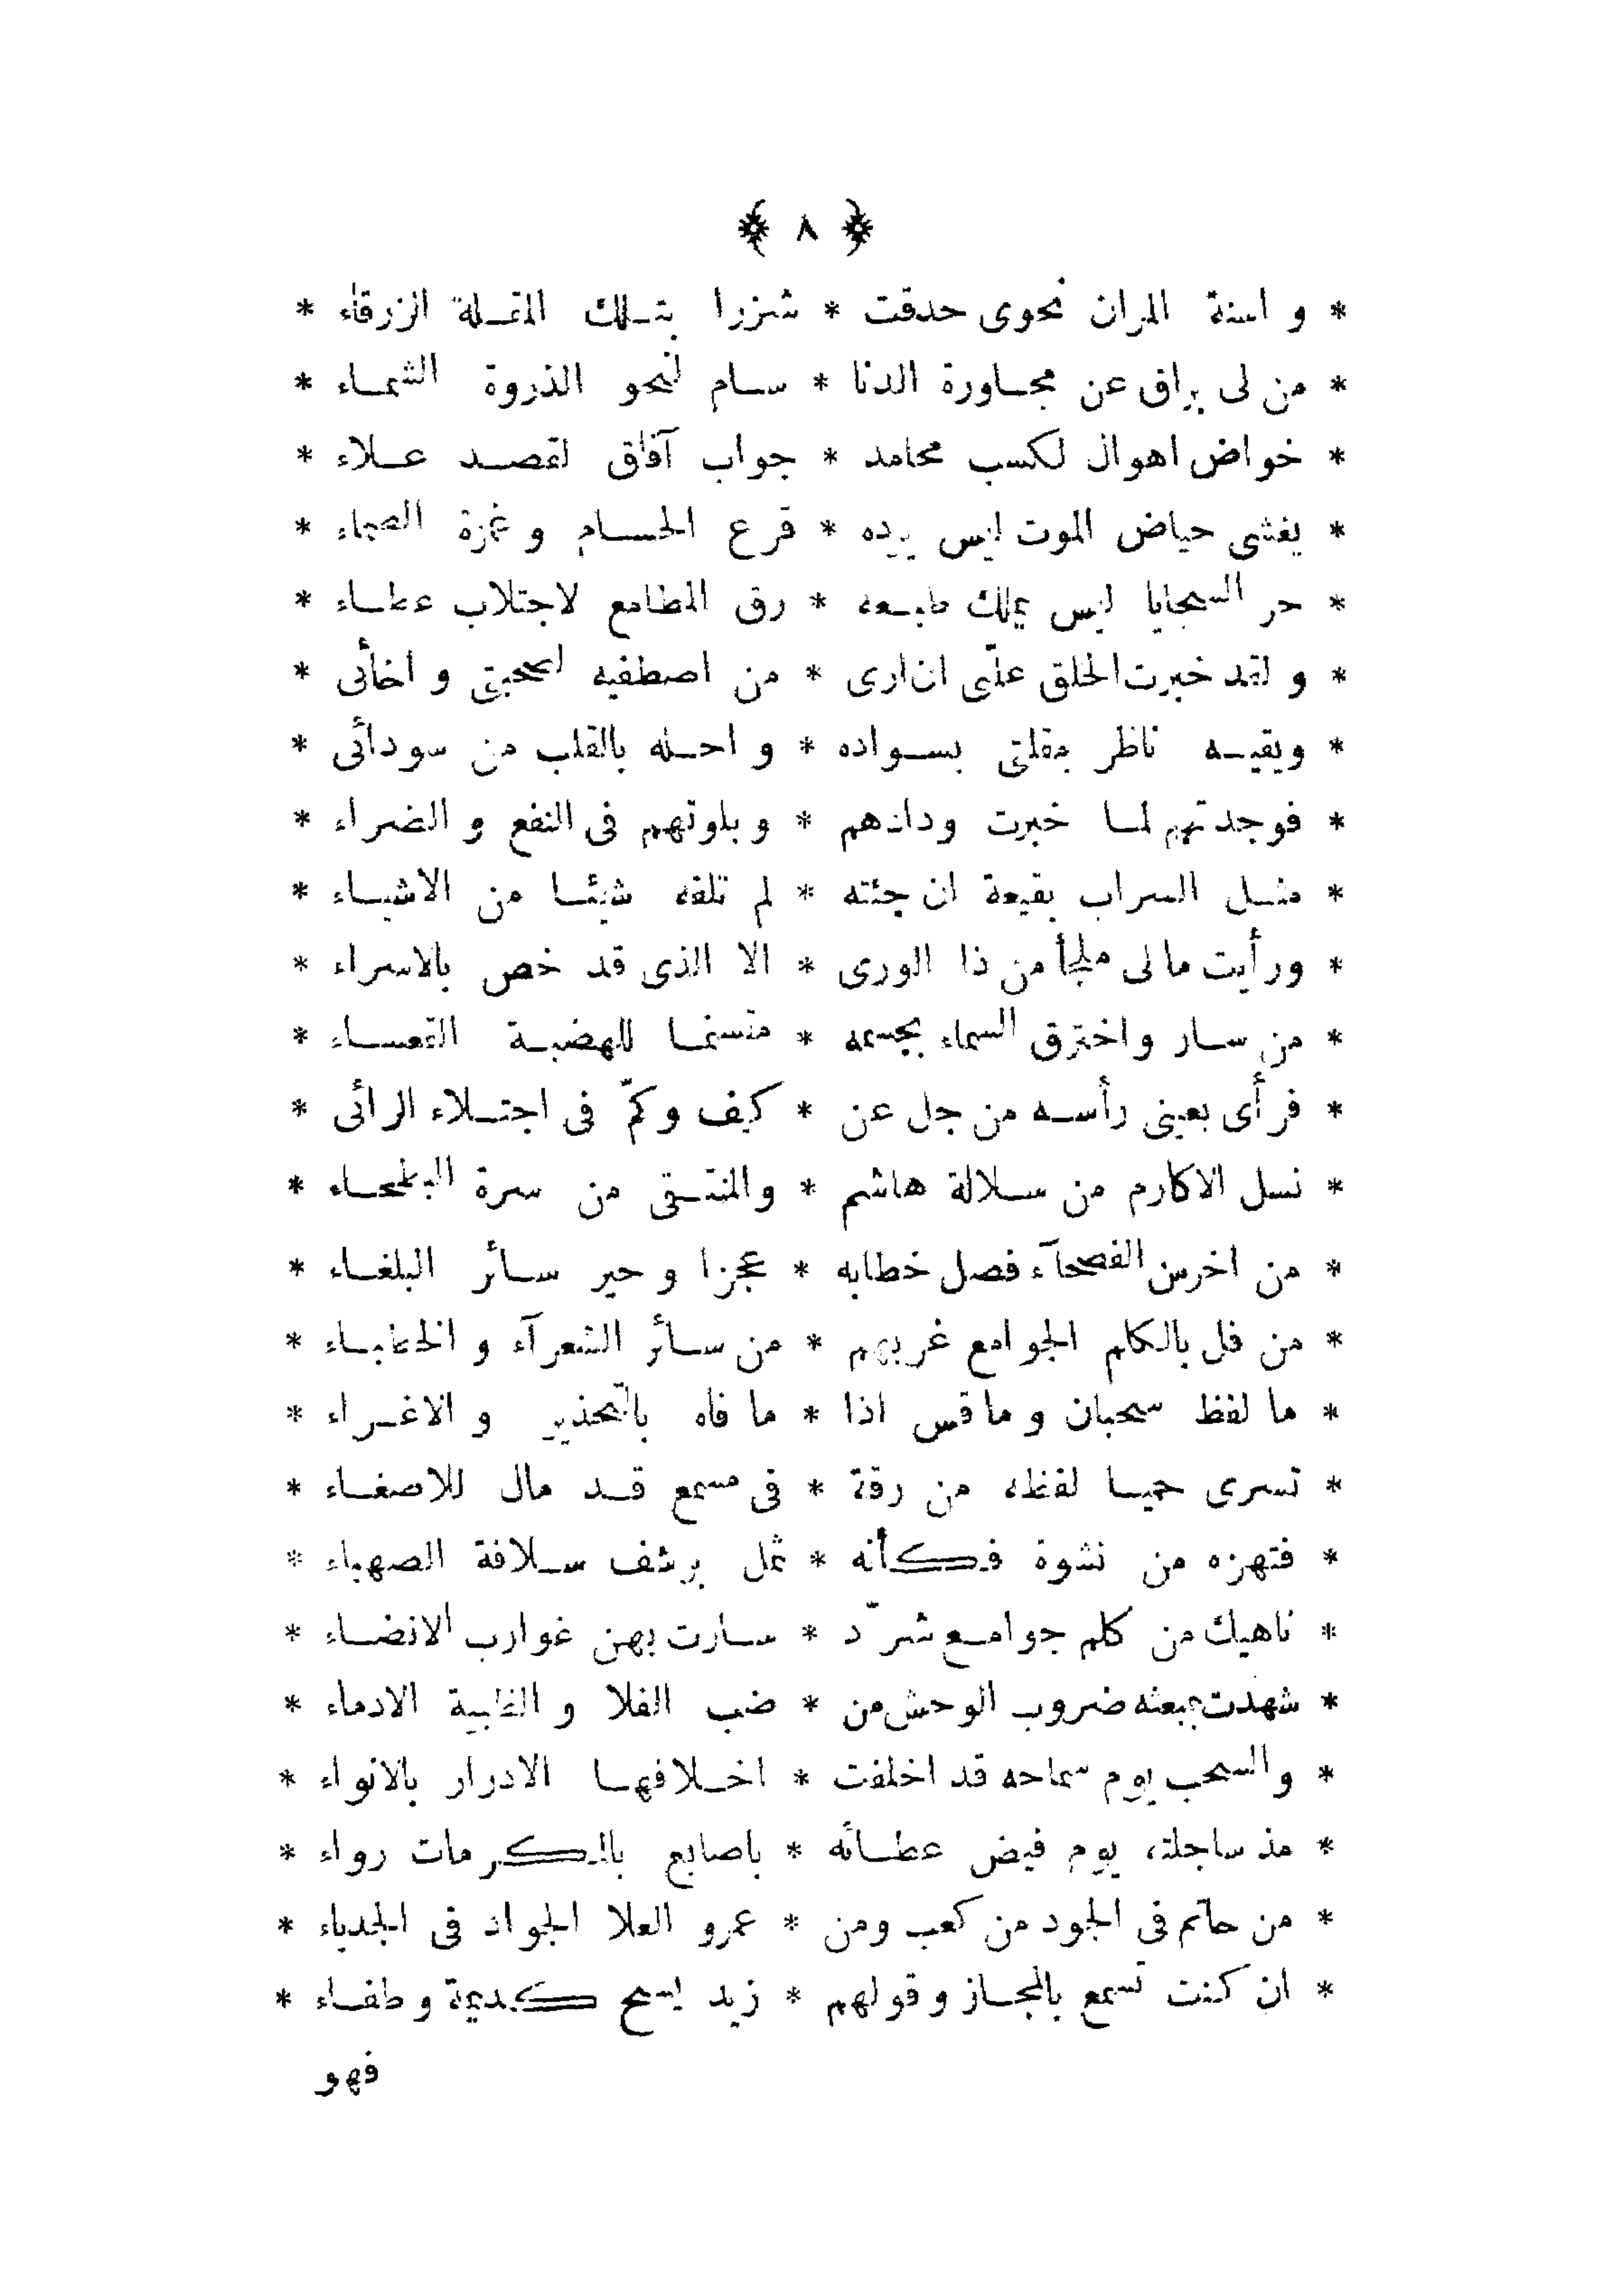 ﴿ ٨ ﴾
* و اسنة المران نحوى حدقت * شزرا بتلك المقلة الزرقاء *
* من لى براق عن مجاورة الدنا * سام لنحو الذروة الشماء *
* خواض اهوال لكسب محامد * جواب آفاق لقصد علاء *
* يغشى حياض الموت ليس يرده * قرع الحسام و غمزة الصماء *
* حر السجايا ليس يملك طبعه * رق المطامع لاجتلاب عطاء *
* و لقد خبرت الخلق علّى ان ارى * من اصطفيه لصحبتى و اخأئى *
* ويقيه ناظر مقلتى بسواده * و احله بالقلب من سودأئى *
* فوجدتهم لما خبرت ودادهم * و بلوتهم فى النفع و الضراء *
* مثل السراب بقيعة ان جئته * لم تلقه شيئا من الاشياء *
* ورأيت مالى ملجأ من ذا الورى * الا الذى قد خص بالاسراء *
* من سار واخترق السماء بجسمه * متسنما للهضبة القعساء *
* فرأى بعينى رأسه من جل عن * كيف وكمّ فى اجتلاء الرائى *
* نسل الاكارم من سلالة هاشم * والمنتقى من سرة البطحاء *
* من اخرس الفصحآء فصل خطابه * عجزا و حير سأئر البلغاء *
* من فل بالكلم الجوامع غربهم * من سأئر الشعرآء و الخطباء *
* ما لفظ سحبان و ما قس اذا * ما فاه بالتّحذير و الاغراء *
* تسرى حميا لفظه من رقة * فى مسمع قد مال للاصغاء *
* فتهزه من نشوة فكأنه * ثمل برشف سلافة الصهباء *
* ناهيك من كلم جوامع شرّد * سارت بهن غوارب الانضاء *
* شهدت ببعثه ضروب الوحش من * ضب الفلا و الظبية الادماء *
* والسحب يوم سماحه قد اخلفت * اخلافها الادرار بالانواء *
* مذ ساجلته يوم فيض عطائه * باصابع بالمكرمات رواء *
* من حاتم فى الجود من كعب ومن * عمرو العلا الجواد فى الجدباء *
* ان كنت تسمع بالمجاز و قولهم * زيد يسح كديمة وطفاء *
فهو